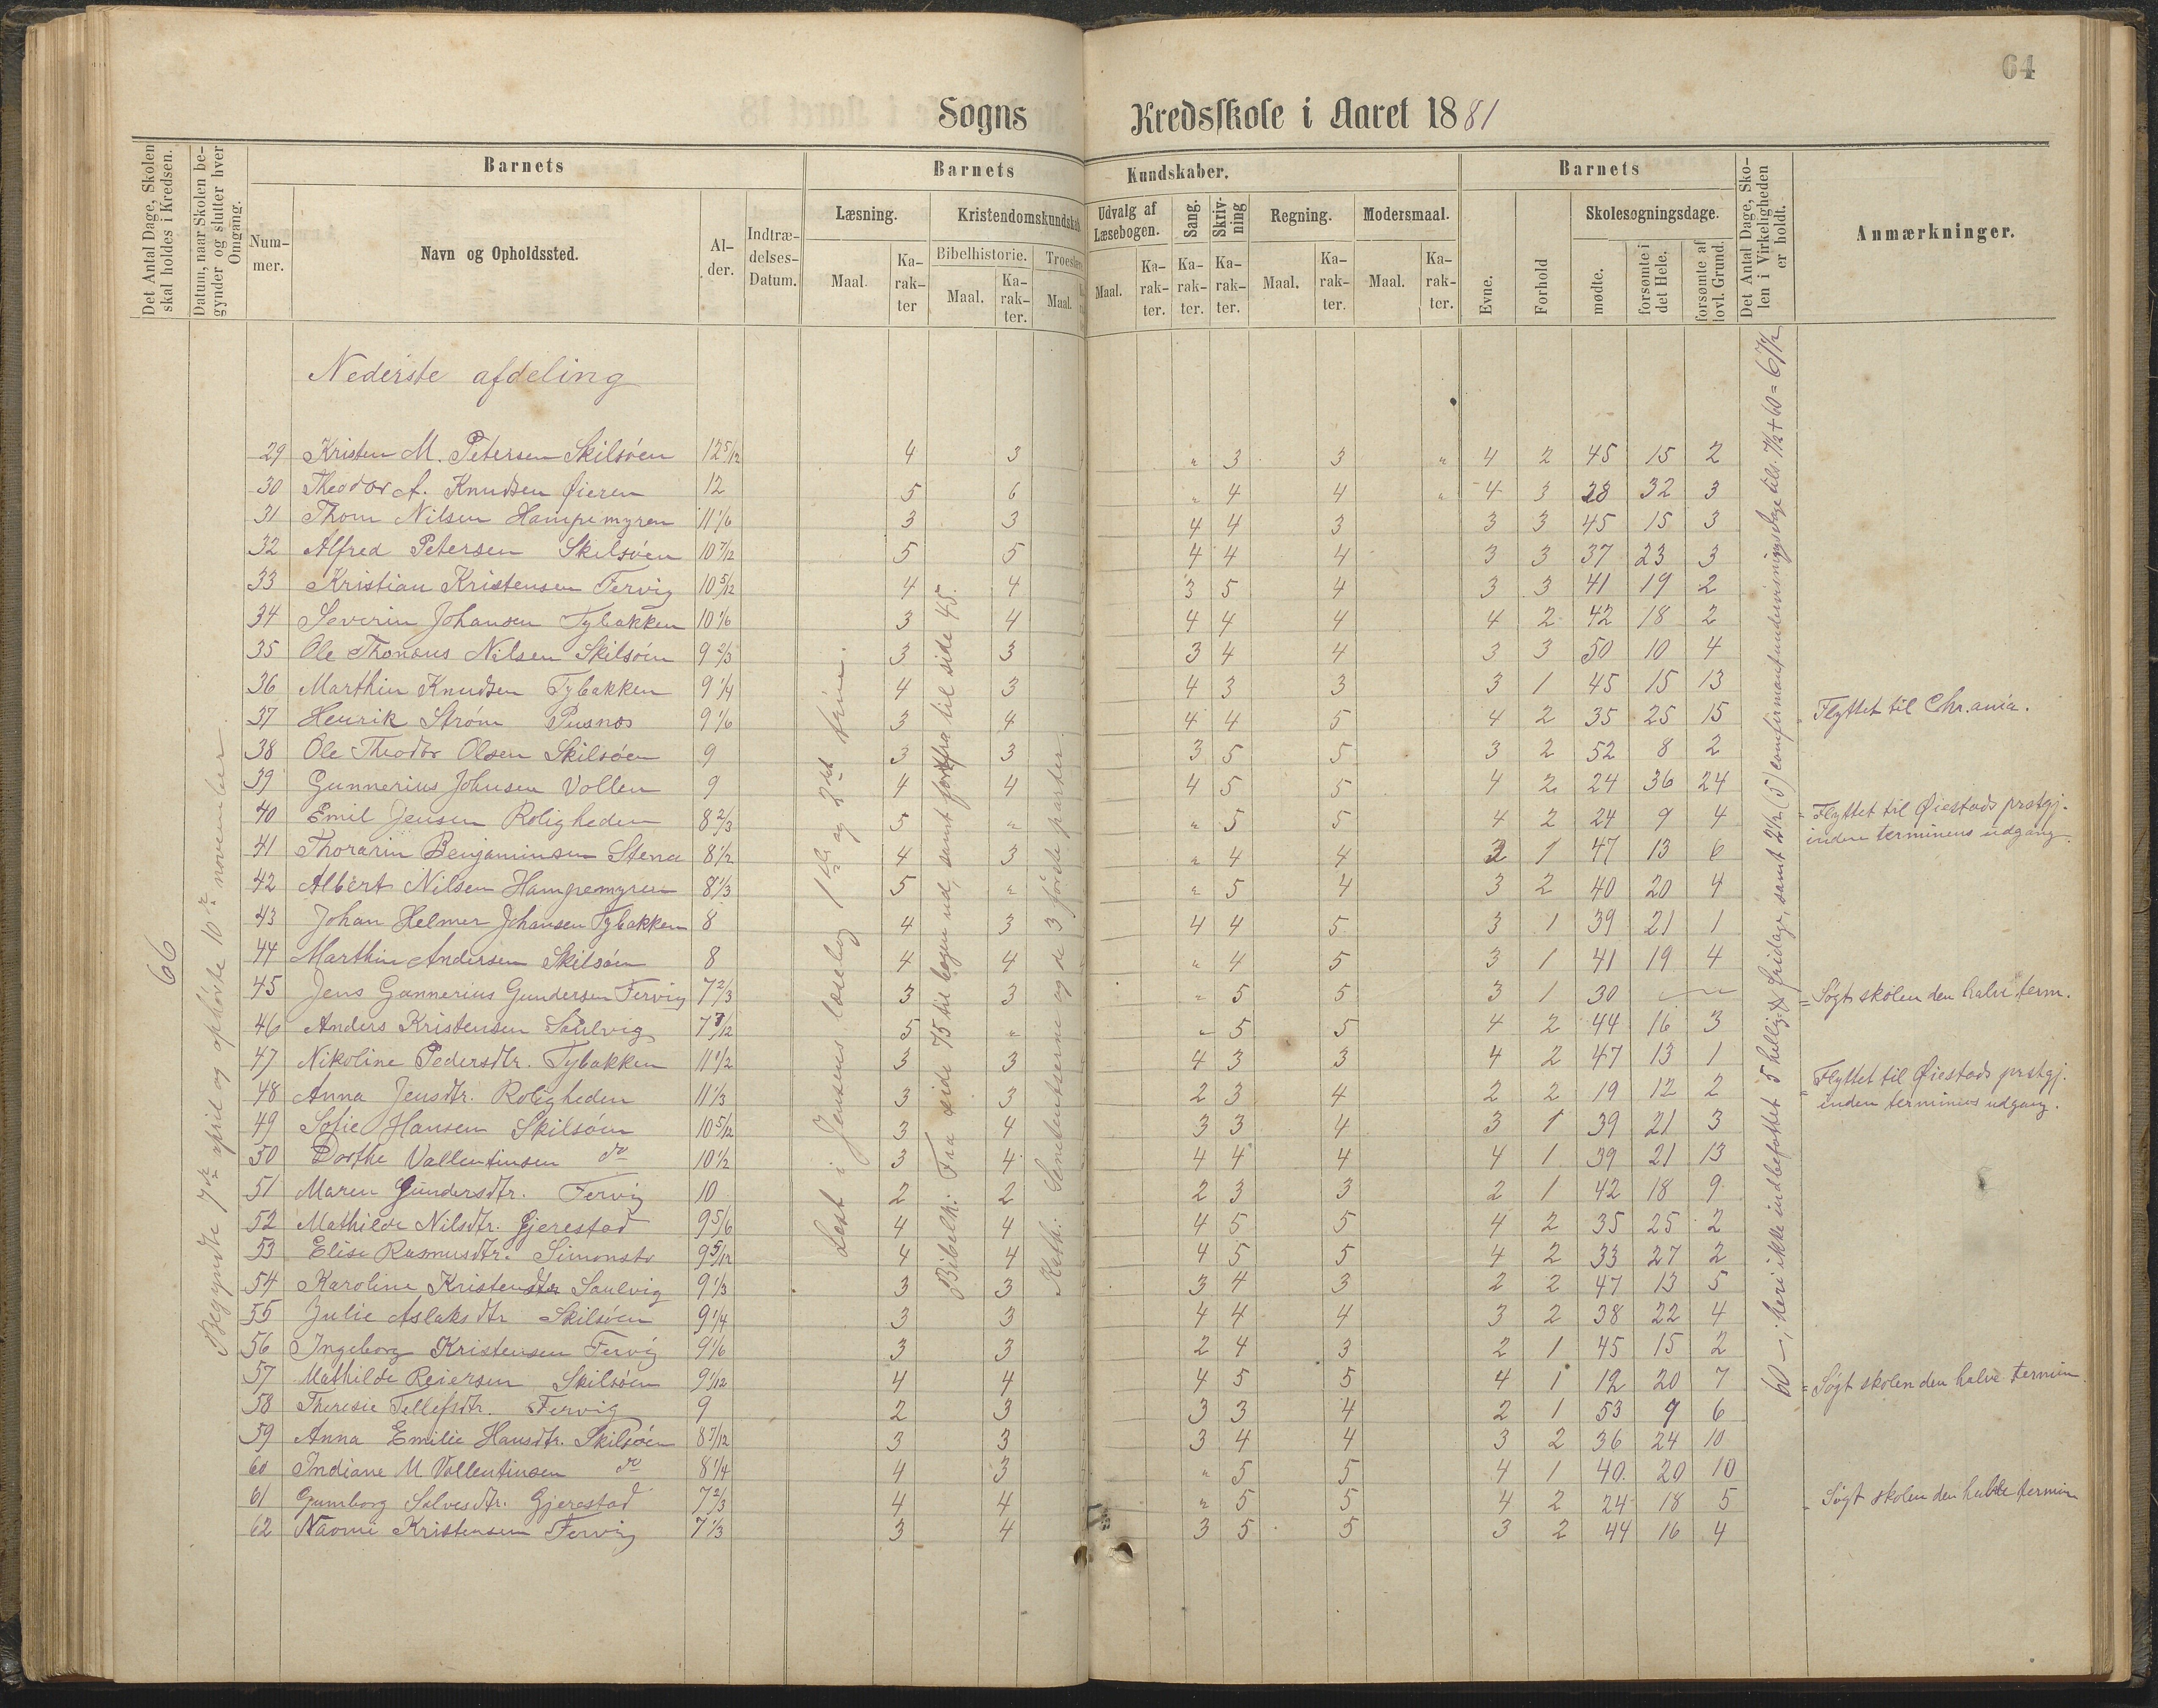 64
Sogns Kredsskole i Aaret 1881
Det Antal Dage, Skolen skal holdes i Kredsen.
Datum, naar Skolen begynder og slutter hver Omgang.
Barnets
Nummer.
Navn og Opholdssted.
Alder.
Indtrædelses-Datum.
Barnets Kundskaber.
Læsning.
Maal.
Karakter
Kristendomskundskab
Bibelhistorie.
Maal.
Karakter.
Troeslære
Maal.
Udvalg af Læsebogen.
Maal.
Karakter.
Sang.
Karakter.
Skrivning
Karakter.
Regning.
Maal.
Karakter.
Modersmaal.
Maal.
Karakter.
Barnets
Evne.
Forhold
Skolesøgningsdage.
mødte.
forsømte i det Hele.
forsømte af lovl. Grund.
Det Antal Dage, Skolen i Virkeligheden er holdt.
Anmærkninger.
66
Begyndte 7de april og ophøvte 10de november.
Læst i Jensens læsebog 1ste og 2det trin.
Bibelh: Fra side 75 til bogen ud, samt forfra til side 45.
Kath: Sententserne og de 3 første parter.
60 —, heri ikke indbefattet 5 hellig- & fridage, samt 2½ (5) comfirmantundervisningsdage tils. 7½ + 60 = 67½
Nederste afdeling
29 Kristen M. Petersen Skilsöen 12 5/12 4 3 " 3 3 " 4 2 45 15 2
30 Theodor A. Knudsen Öieren 12 5 6 " 4 4 " 4 3 28 32 3
31 Thom Nilsen Hampemyren 11 1/6 3 3 4 4 3 3 3 45 15 3
32 Alfred Petersen Skilsöen 10 7/12 5 5 4 4 4 3 3 37 23 3
33 Kristian Kristensen Fervig 10 5/12 4 4 3 5 4 3 3 41 19 2
34 Severin Johansen Tybakken 10 1/6 3 4 4 4 4 4 2 42 18 2
35 Ole Thomas Nilsen Skilsöen 9 2/3 3 3 3 4 4 3 3 50 10 4
36 Marthin Knudsen Tybakken 9 1/4 4 3 4 3 3 3 1 45 15 13
37 Henrik Ström Pusnes 9 1/6 3 4 4 4 5 4 2 35 25 15 " Flyttet til Chr.ania.
38 Ole Theodor Olsen Skilsöen 9 3 3 3 5 5 3 2 52 8 2
39 Gunnerius Johnsen Vollen 9 4 4 4 5 5 4 2 24 36 24
40 Emil Jensen Roligheden 8 2/3 5 " " 5 5 4 2 24 9 4 " Flyttet til Öiestads prstgj.
inden terminens udgang.
41 Thorarin Benjaminsen Stena 8 1/2 4 3 " 4 4 3 1 47 13 6
42 Albert Nilsen Hampemyren 8 1/3 5 " " 5 4 3 2 40 20 4
43 Johan Helmer Johansen Tybakken 8 4 3 4 4 5 3 1 39 21 1
44 Marthin Andersen Skilsöen 8 4 4 " 4 5 3 1 41 19 4
45 Jens Gunnerius Gundersen Fervig 7 2/3 3 3 " 5 5 3 1 30 — " Sögt skolen den halve term.
46 Anders Kristensen Saulvig 7 7/12 5 " " 5 5 4 2 44 16 3
47 Nikoline Pedersdtr. Tybakken 11 1/2 3 3 4 3 3 4 2 47 13 1
48 Anna Jensdtr. Roligheden 11 1/3 3 3 2 3 4 2 2 19 12 2 " Flyttet til Öiestads prstgj.
inden terminens udgang.
49 Sofie Hansen Skilsöen 10 5/12 3 4 3 3 4 3 1 39 21 3
50 Dorthe Vallentinsen do 10 1/2 3 4 4 4 4 4 1 39 21 13
51 Maren Gundersdtr. Fervig 10 2 2 2 3 3 2 1 42 18 9
52 Mathilde Nilsdtr. Gjerestad 9 5/6 4 4 4 5 5 4 2 35 25 2
53 Elise Rasmusdtr. Simonstø 9 5/12 4 4 4 5 5 4 2 33 27 2
54 Karoline Kristensdtr Saulvig 9 1/3 3 3 3 4 3 2 2 47 13 5
55 Julie Aslaksdtr Skilsöen 9 1/4 3 3 4 4 4 3 2 38 22 4
56 Ingeborg Kristensen Fervig 9 1/6 3 3 2 4 3 2 1 45 15 2
57 Mathilde Reiersen Skilsöen 9 1/12 4 4 4 5 5 4 1 12 20 7 " Sögt skolen den halve termin
58 Theresie Tellefsdtr. Fervig 9 2 3 3 3 4 2 1 53 9 6
59 Anna Emilie Hansdtr. Skilsöen 8 7/12 3 3 3 4 4 3 2 36 24 10
60 Indiane M Vallentinsen do 8 1/4 4 3 " 5 5 4 1 40 20 10
61 Gumborg Salvesdtr. Gjerestad 7 2/3 4 4 " 5 5 4 2 24 18 5 " Sögt skolen den halve termin
62 Naomi Kristensen Fervig 7 1/3 3 4 3 5 5 3 2 44 16 4